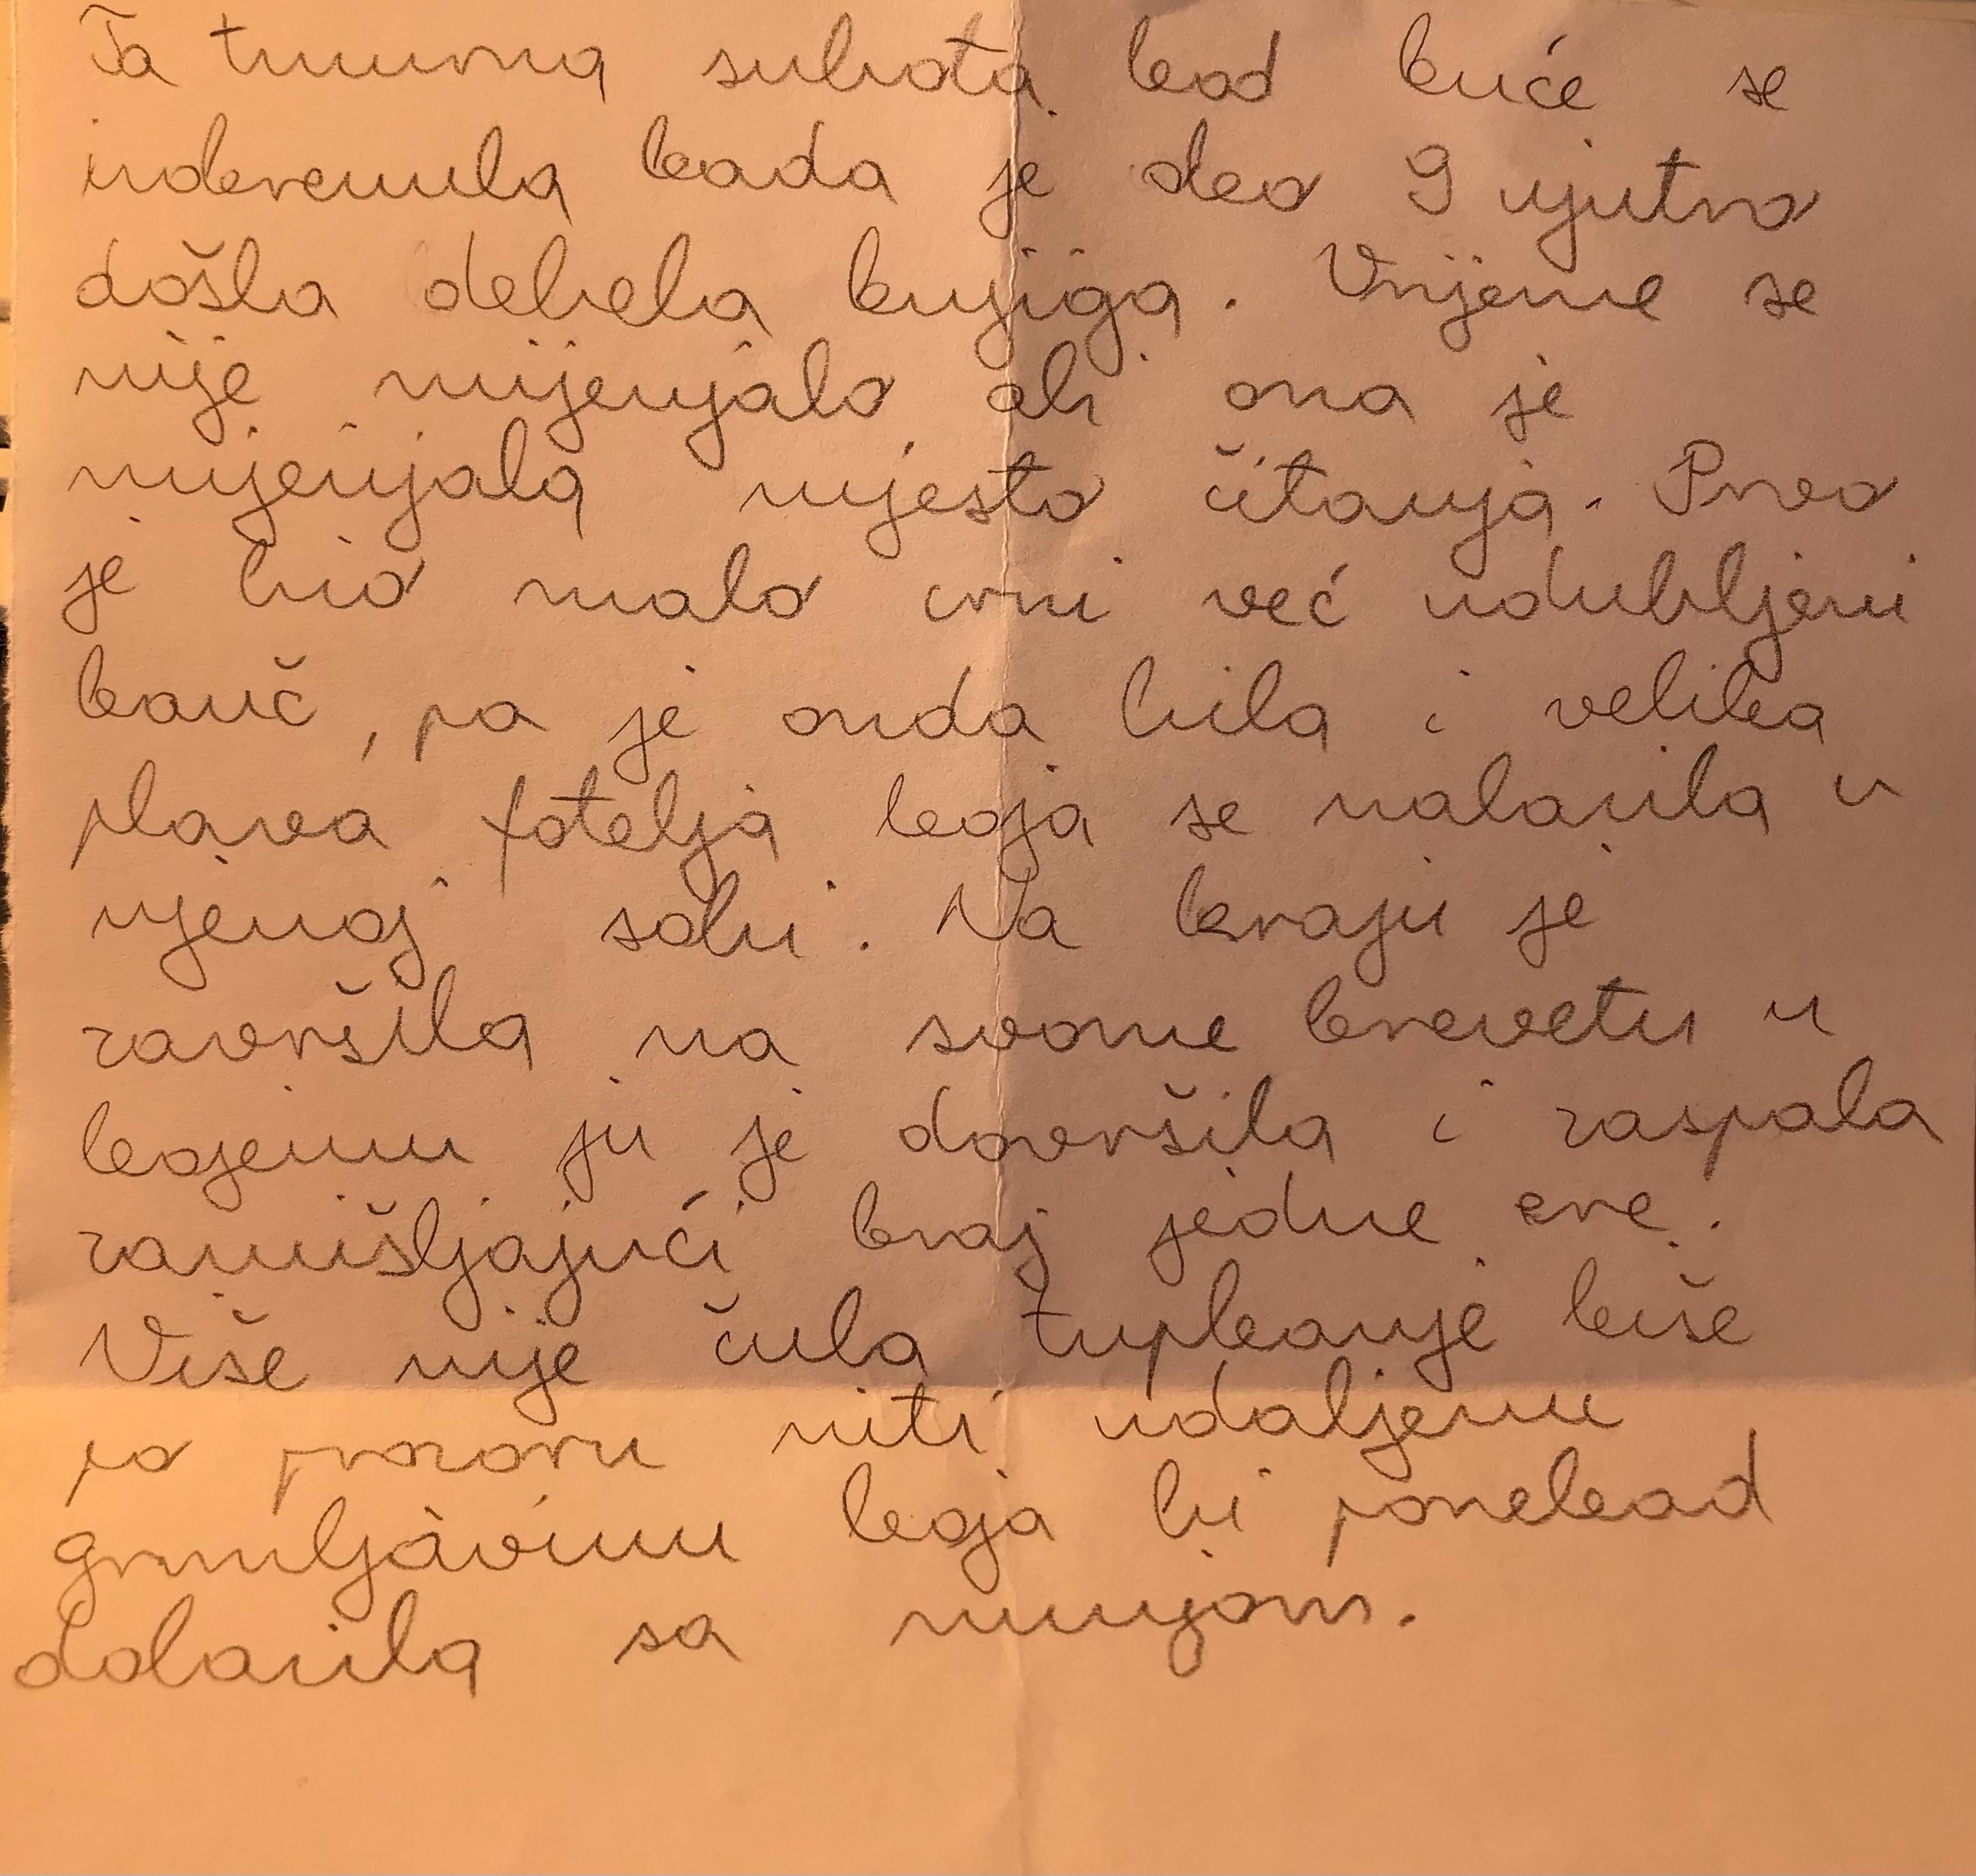 Ta tmurna subota kod kuće se
izokrenula kada je oko 9 ujutro
došla debela knjiga. Vrijeme se
nije mijenjalo ali ona je
mijenjala mjesto čitanja. Prvo
je bio malo crni već udubljeni
kauč, pa je onda bila i velika
plava fotelja koja se nalazila u
njenoj sobi. Na kraju je
završila na svome krevetu u
kojemu ju je dovršila i zaspala
zamišljajući kraj jedne ere.
Više nije čula tupkanje kiše
po prozoru niti udaljenu
grmljavinu koja bi ponekad
dolazila sa munjom.